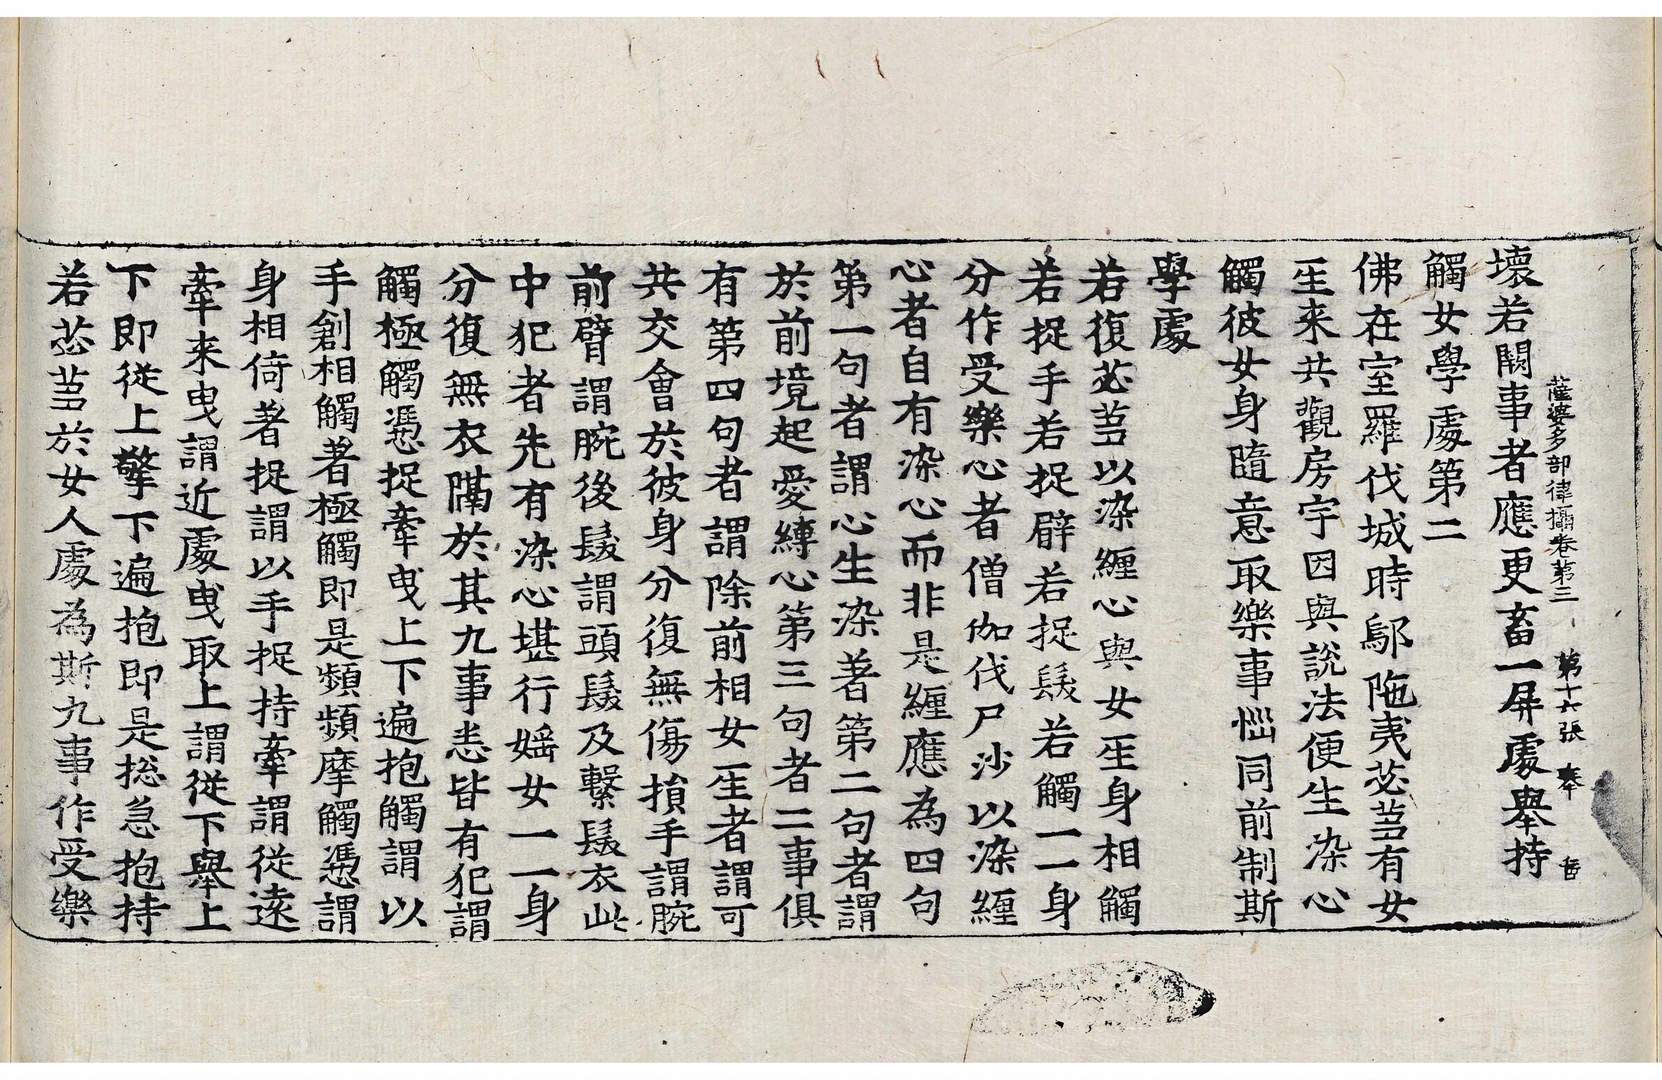 薩婆多部律攝卷第三　第十六張　奉
壞若闕事者應更畜一屏處舉持
觸女學處第二
佛在室羅伐城時鄔陁夷苾芻有女
生来共觀房宇因與說法便生染心
觸彼女身隨意取樂事惱同前制斯
學處
若復苾芻以染纏心與女生身相觸
若捉手若捉臂若捉髮若觸一一身
分作受樂心者僧伽伐尸沙以染纏
心者自有染心而非是纏應為四句
第一句者謂心生染著第二句者謂
於前境起愛縛心第三句者二事俱
有第四句者謂除前相女生者謂可
共交會於彼身分復無傷損手謂腕
前臂謂腕後髮謂頭髮及繫髮衣此
中犯者先有染心堪行婬女一一身
分復無衣隔於其九事悉皆有犯謂
觸極觸憑捉牽曳上下遍抱觸謂以
手創相觸著極觸即是頻頻摩觸憑謂
身相倚著捉謂以手捉持牽謂從遠
牽来曳謂近處曳取上謂從下舉上
下即從上擎下遍抱即是捴急抱持
若苾芻於女人處為斯九事作受樂